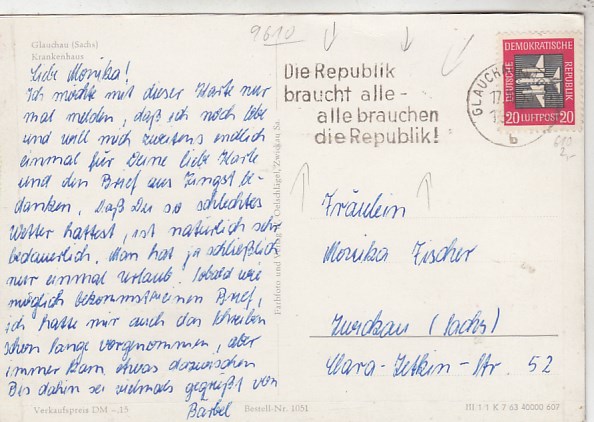 9610
Glauchau (Sachs)
Krankenhaus
Liebe Monika!
Ich möchte mit dieser Karte nur
mal melden, daß ich noch lebe
und will mich zweitens endlich
einmal für Deine liebe Karte
und den Brief aus Zingst be-
danken. Daß Du so schlechtes
Wetter hattest, ist natürlich sehr
bedauerlich. Man hat ja schließlich
nur einmal Urlaub. Sobald wie
möglich bekommst einen Brief,
ich hatte mir auch das Schreiben
schon lange vorgenommen, aber
immer kam etwas dazwischen
Bis dahin sei vielmals gegrüßt von
Bärbel
Verkaufspreis DM -.15
Bestell-Nr. 1051
Farbfoto und Verlag E. Oelschlägel, Zwickau Sa.
Die Republik
braucht alle -
alle brauchen
die Republik!
GLAUCH
17.
b
DEMOKRATISCHE
DEUTSCHE
REPUBLIK
20 LUFTPOST 20
Fräulein
Monika Fischer
Zwickau (Sachs)
Clara-Zetkin-Str. 52
III 1/1 K 7 63 40000 607